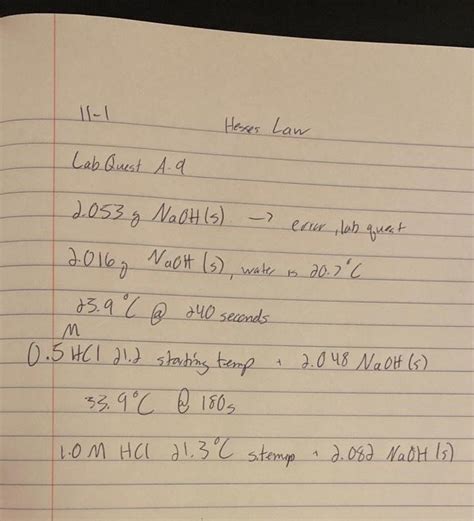 11-1
Hesses Law
Lab Quest A.9
2.053 g NaOH(s) → error, lab quest
2.016 g NaOH (s), water is 20.7°C
23.9°C @ 240 seconds
0.5 M HCl 21.2 starting temp + 2.048 NaOH(s)
33.9°C @ 180s
1.0 M HCl 21.3°C s.temp + 2.082 NaOH (s)